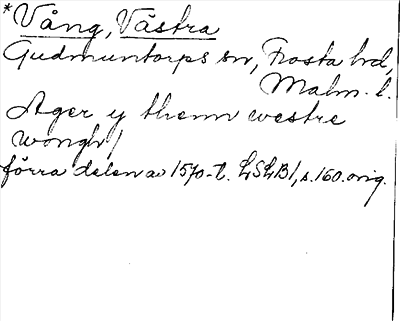 *Vång, Västra
Gudmuntorps sn, Frosta hd,
Malm. l.
Ager y themn westre
wongh/
förra delen av 1570-t. LSLB1, s. 160. orig.